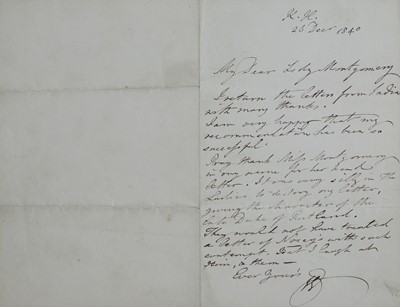 K. H.
23 Decr 1840
My Dear Lady Montgomery
I return the letters from India
with many thanks.
I am very happy that my
recommendation has been so
successful
Pray thank Miss Montgomery
in my name for her kind
letter. It was very silly in the
Ladies to destroy my letter,
giving the character of the
late Duke of Rutland.
They would not have treated
a letter of with such
contempt. But I laugh at
them —
Ever Yours